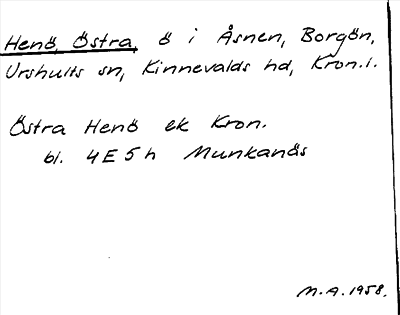 Henö, Östra, ö i Åsnen, Borgön,
Urshults sn, Kinnevalds hd, Kron.l.
Östra Henö ek Kron.
bl. 4E5h Munkanäs
M.A. 1958.